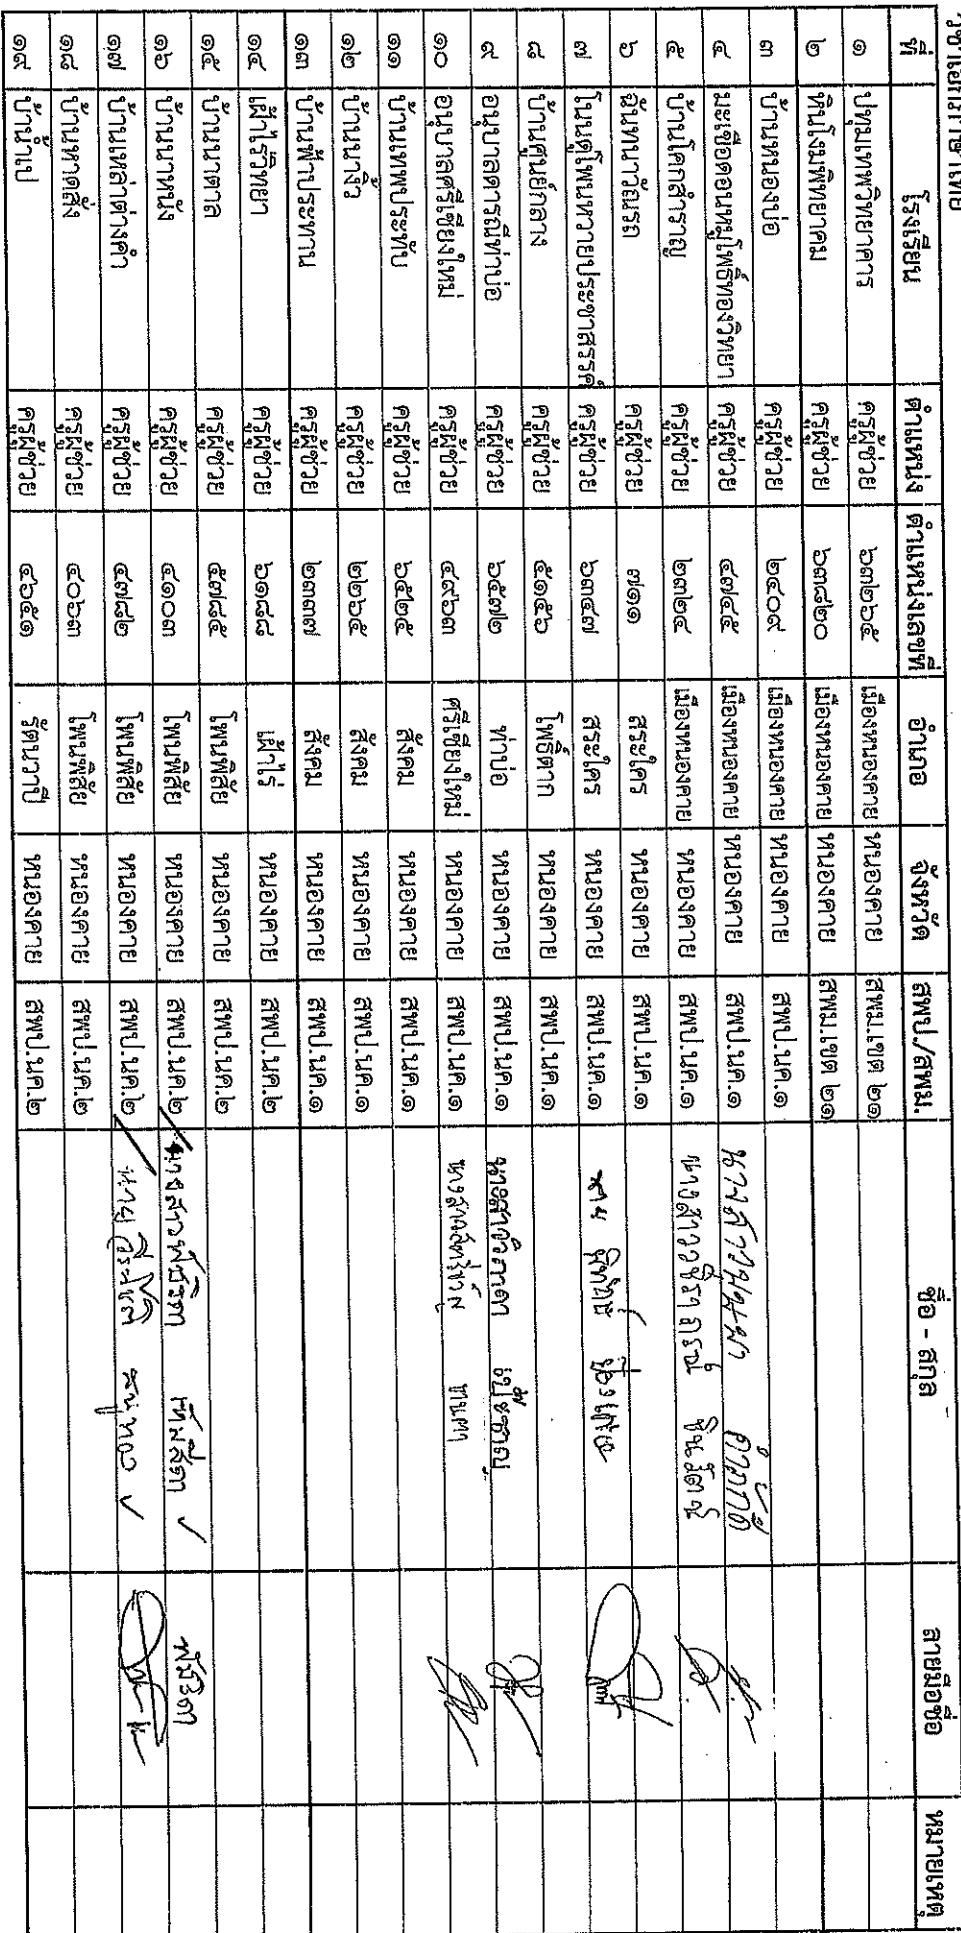 วิชาเอกภาษาไทย
ที่ โรงเรียน ตำแหน่ง ตำแหน่งเลขที่ อำเภอ จังหวัด สพป./สพม. ชื่อ - สกุล ลายมือชื่อ หมายเหตุ
๑ ปทุมเทพวิทยาคาร ครูผู้ช่วย ๖๓๒๖๕ เมืองหนองคาย หนองคาย สพม.เขต ๒๑
๒ หินโงมพิทยาคม ครูผู้ช่วย ๖๓๘๒๐ เมืองหนองคาย หนองคาย สพม.เขต ๒๑
๓ บ้านหนองบ่อ ครูผู้ช่วย ๒๔๐๙ เมืองหนองคาย หนองคาย สพป.นค.๑
๔ มะเขือดอนหมูโพธิ์ทองวิทยา ครูผู้ช่วย ๔๗๔๕ เมืองหนองคาย หนองคาย สพป.นค.๑ นางสาว
๕ บ้านโคกสำราญ ครูผู้ช่วย ๒๓๒๔ เมืองหนองคาย หนองคาย สพป.นค.๑ นางสาววชิราภรณ์
๖ ฉันทนาวัฒรถ ครูผู้ช่วย ๗๑๑ สระใคร หนองคาย สพป.นค.๑
๗ โนนดู่โพนหวายประชาสรรค์ ครูผู้ช่วย ๖๓๔๗ สระใคร หนองคาย สพป.นค.๑ นาย
๘ บ้านศูนย์กลาง ครูผู้ช่วย ๕๑๕๖ โพธิ์ตาก หนองคาย สพป.นค.๑
๙ อนุบาลดารณีท่าบ่อ ครูผู้ช่วย ๖๕๗๒ ท่าบ่อ หนองคาย สพป.นค.๑ นางสาววิภาดา
๑๐ อนุบาลศรีเชียงใหม่ ครูผู้ช่วย ๔๙๖๓ ศรีเชียงใหม่ หนองคาย สพป.นค.๑ นางสาว
๑๑ บ้านเทพประทับ ครูผู้ช่วย ๖๕๒๕ สังคม หนองคาย สพป.นค.๑
๑๒ บ้านนางิ้ว ครูผู้ช่วย ๒๒๖๕ สังคม หนองคาย สพป.นค.๑
๑๓ บ้านฟ้าประทาน ครูผู้ช่วย ๒๓๓๗ สังคม หนองคาย สพป.นค.๑
๑๔ เฝ้าไร่วิทยา ครูผู้ช่วย ๖๑๘๘ เฝ้าไร่ หนองคาย สพป.นค.๒
๑๕ บ้านนาตาล ครูผู้ช่วย ๕๗๘๕ โพนพิสัย หนองคาย สพป.นค.๒
๑๖ บ้านนาหนัง ครูผู้ช่วย ๔๑๐๓ โพนพิสัย หนองคาย สพป.นค.๒ นางสาว
๑๗ บ้านเหล่าต่างคำ ครูผู้ช่วย ๔๗๘๒ โพนพิสัย หนองคาย สพป.นค.๒ นาย
๑๘ บ้านหาดสั่ง ครูผู้ช่วย ๔๐๖๓ โพนพิสัย หนองคาย สพป.นค.๒
๑๙ บ้านน้ำเป ครูผู้ช่วย ๔๖๕๑ รัตนวาปี หนองคาย สพป.นค.๒